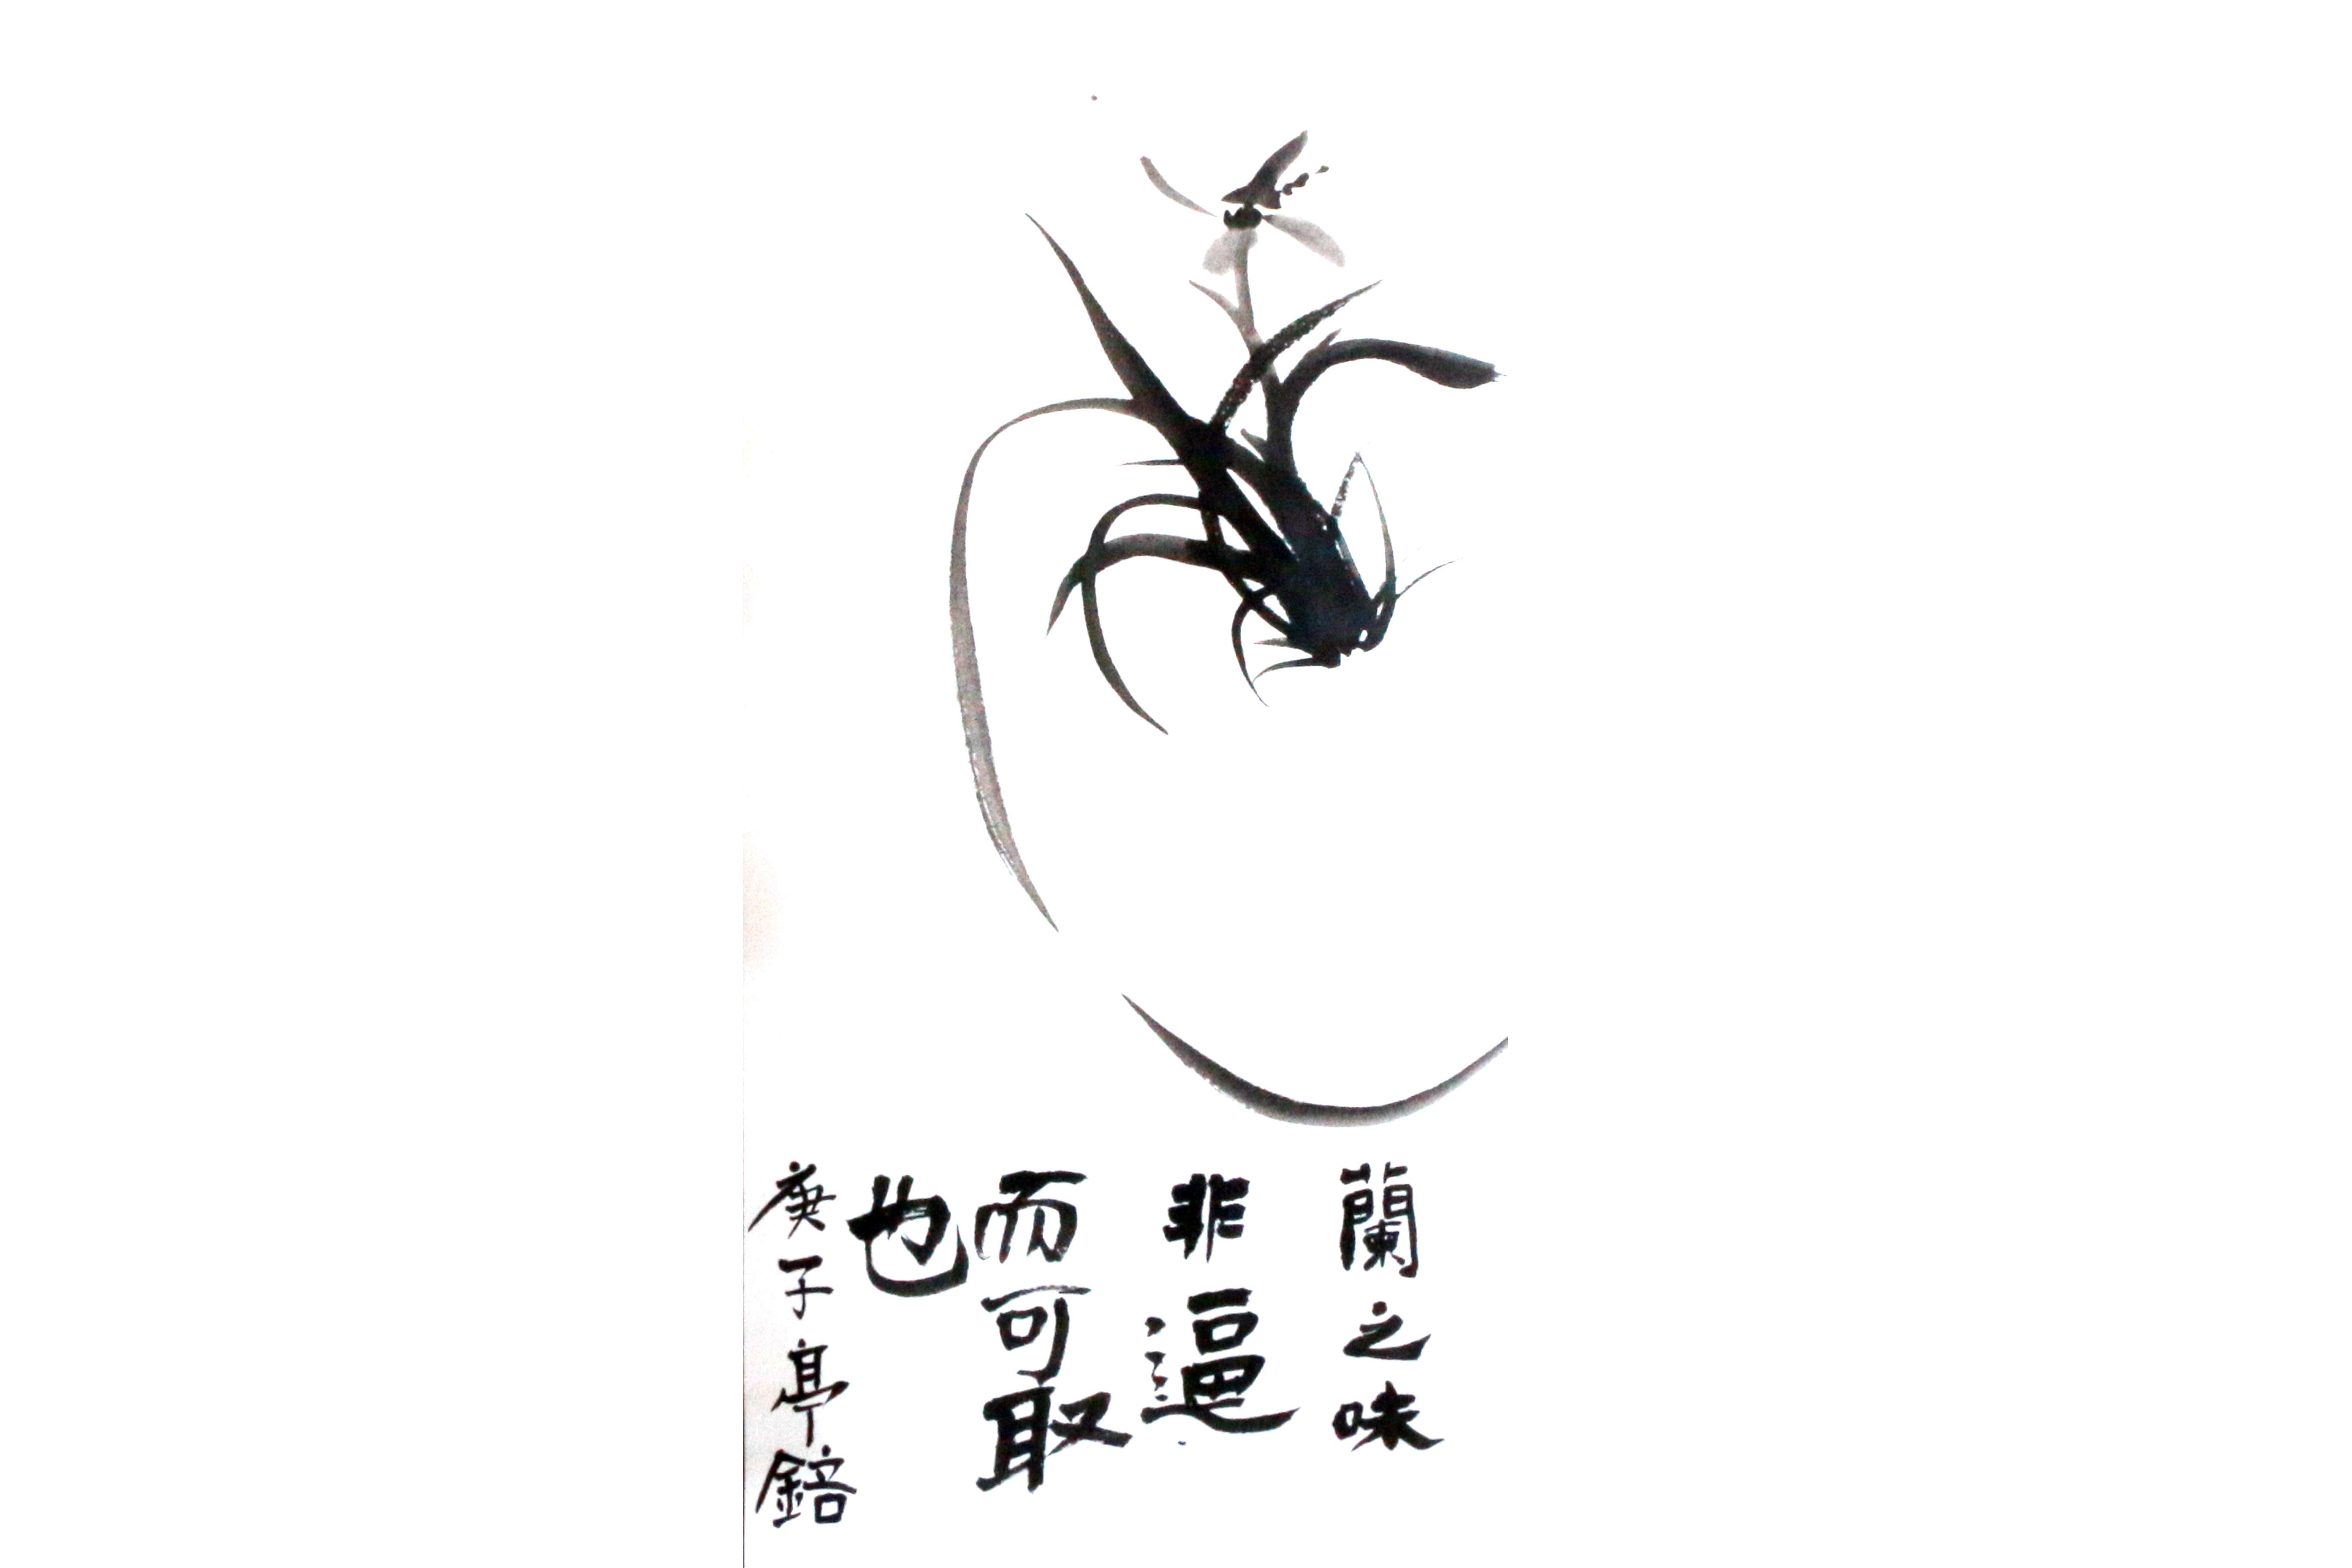 蘭之味
非逼
而可取
也
庚子亭錇